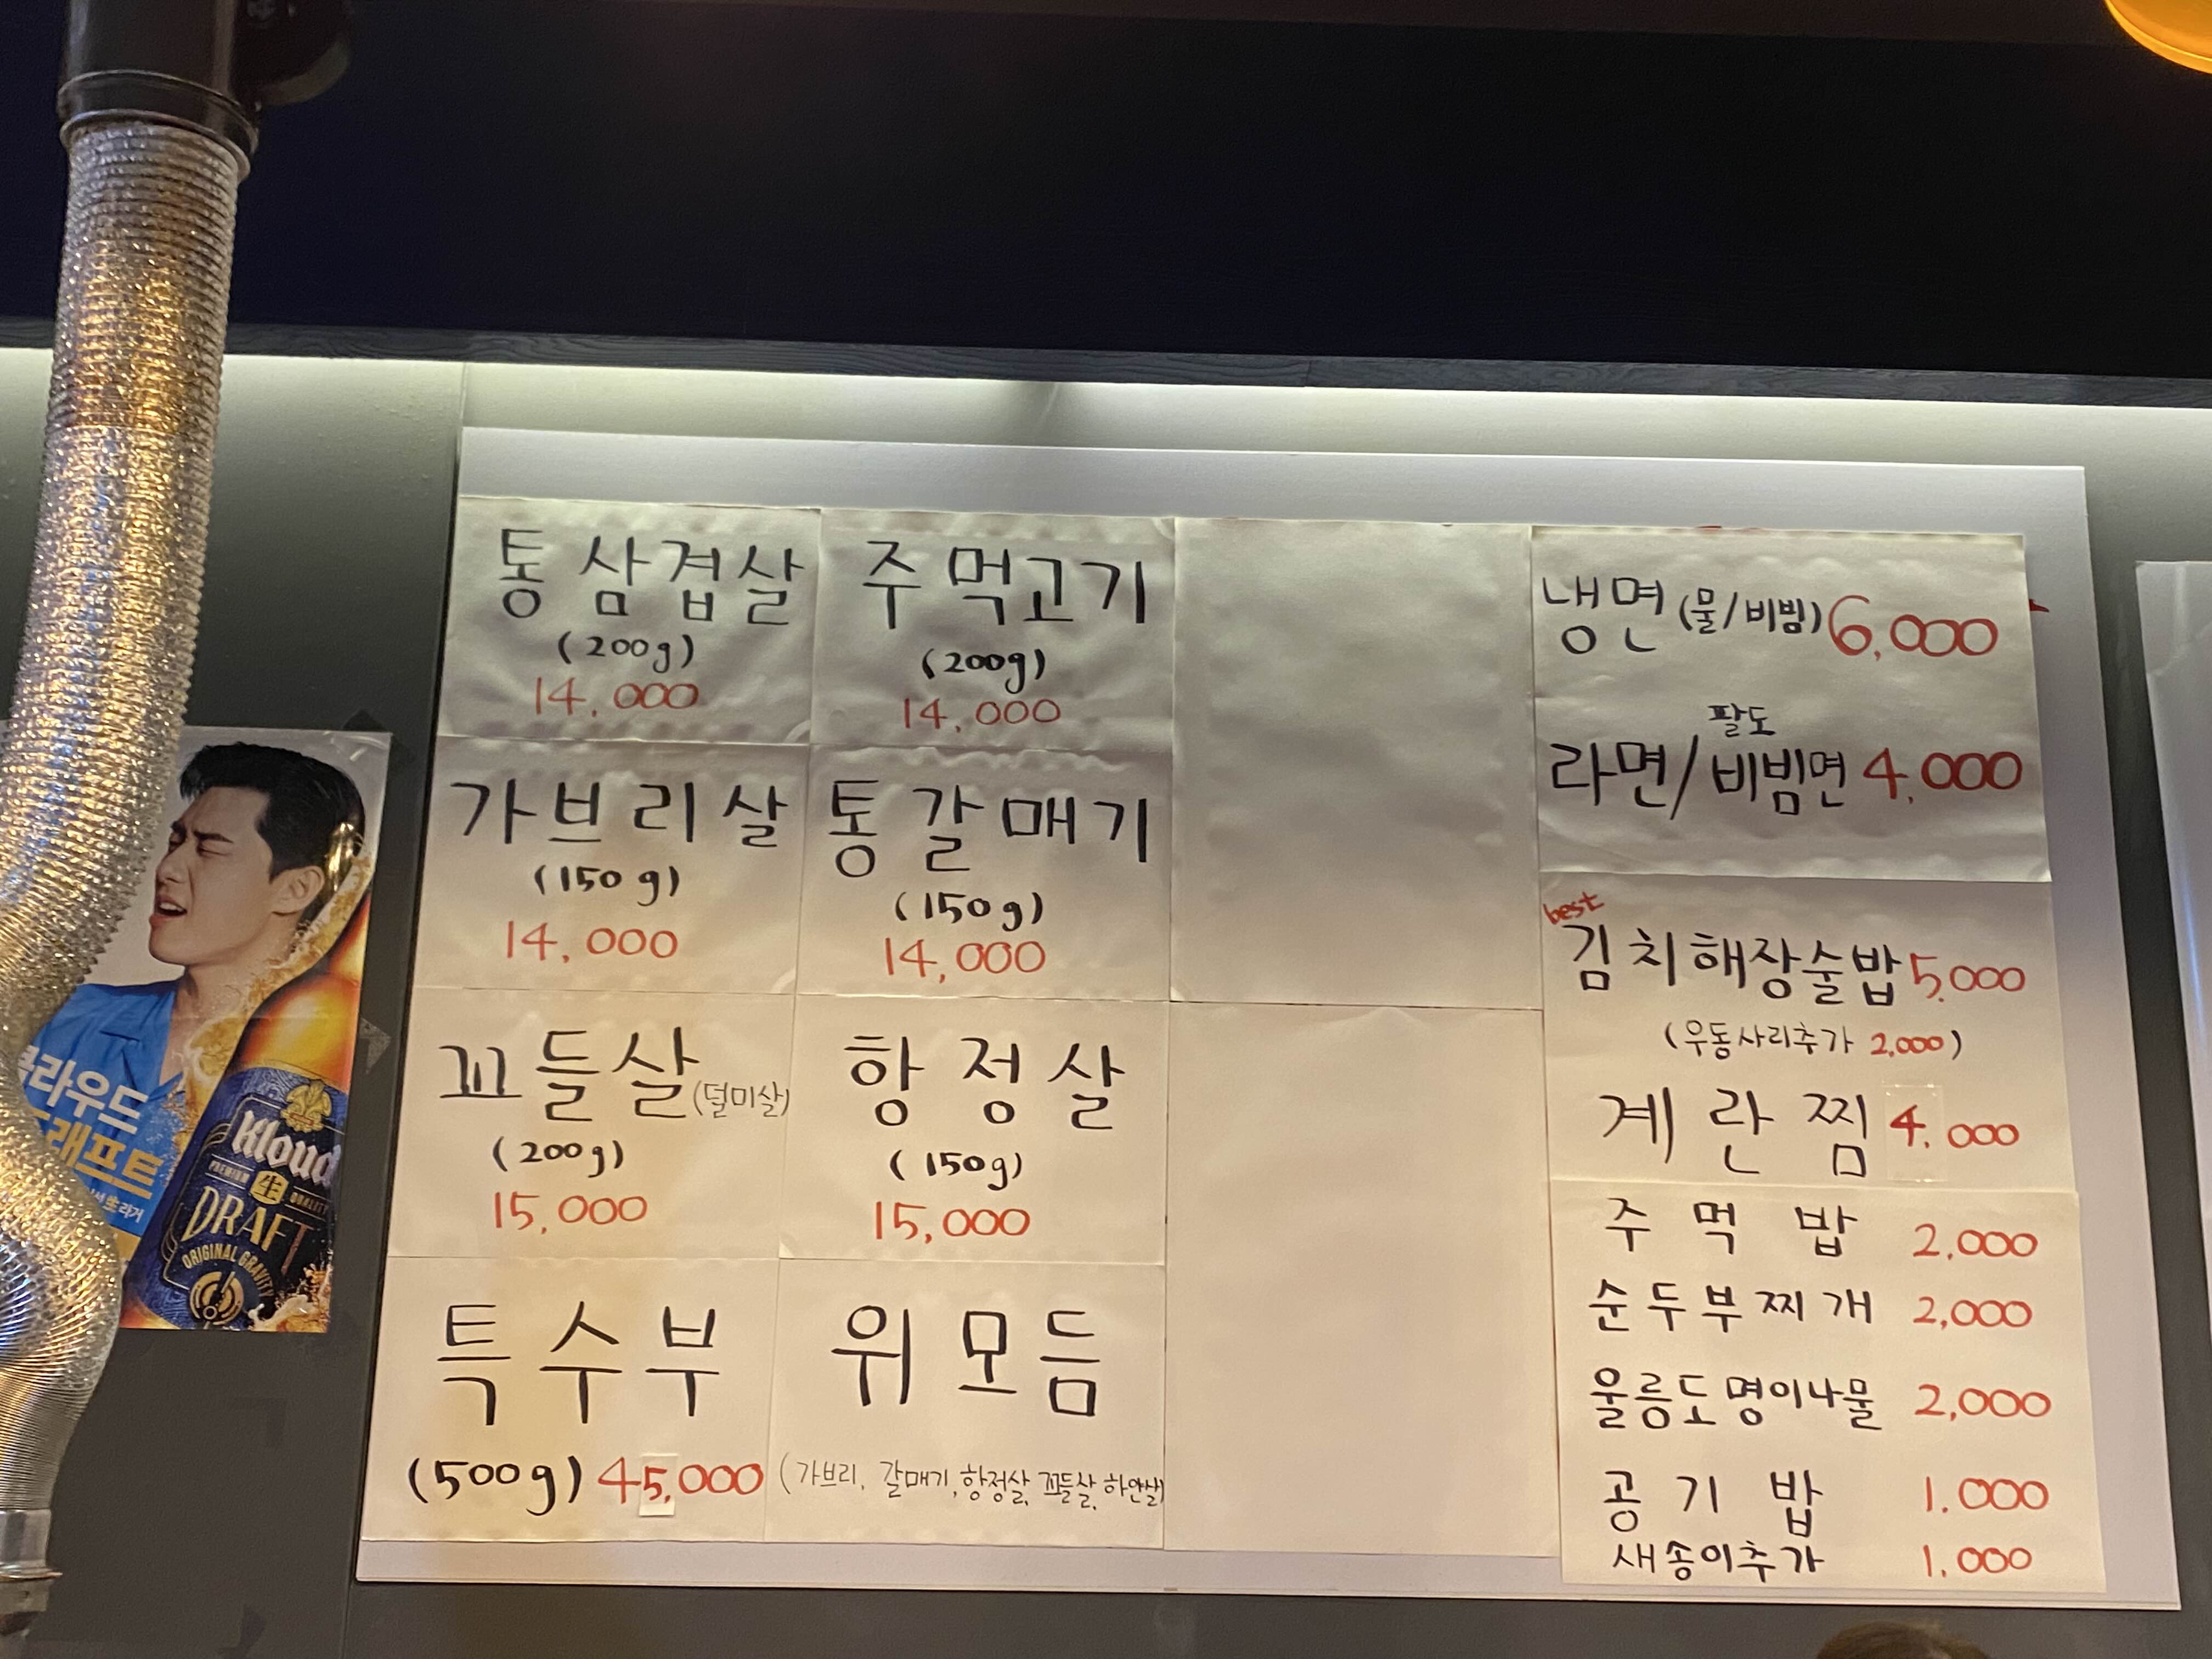 통삼겹살
(200g)
14,000
주먹고기
(200g)
14,000
가브리살
(150g)
14,000
통갈매기
(150g)
14,000
꼬들살(덜미살)
(200g)
15,000
항정살
(150g)
15,000
특수부
위모듬
(500g) 45,000
(가브리, 갈매기, 항정살, 꼬들살, 하얀살)
냉면(물/비빔) 6,000
팔도
라면/비빔면 4,000
best
김치해장술밥 5,000
(우동사리추가 2,000)
계란찜 4,000
주먹밥 2,000
순두부찌개 2,000
울릉도명이나물 2,000
공기밥 1,000
새송이추가 1,000
Kloud
PREMIUM 生 QUALITY
DRAFT
ORIGINAL GRAVITY